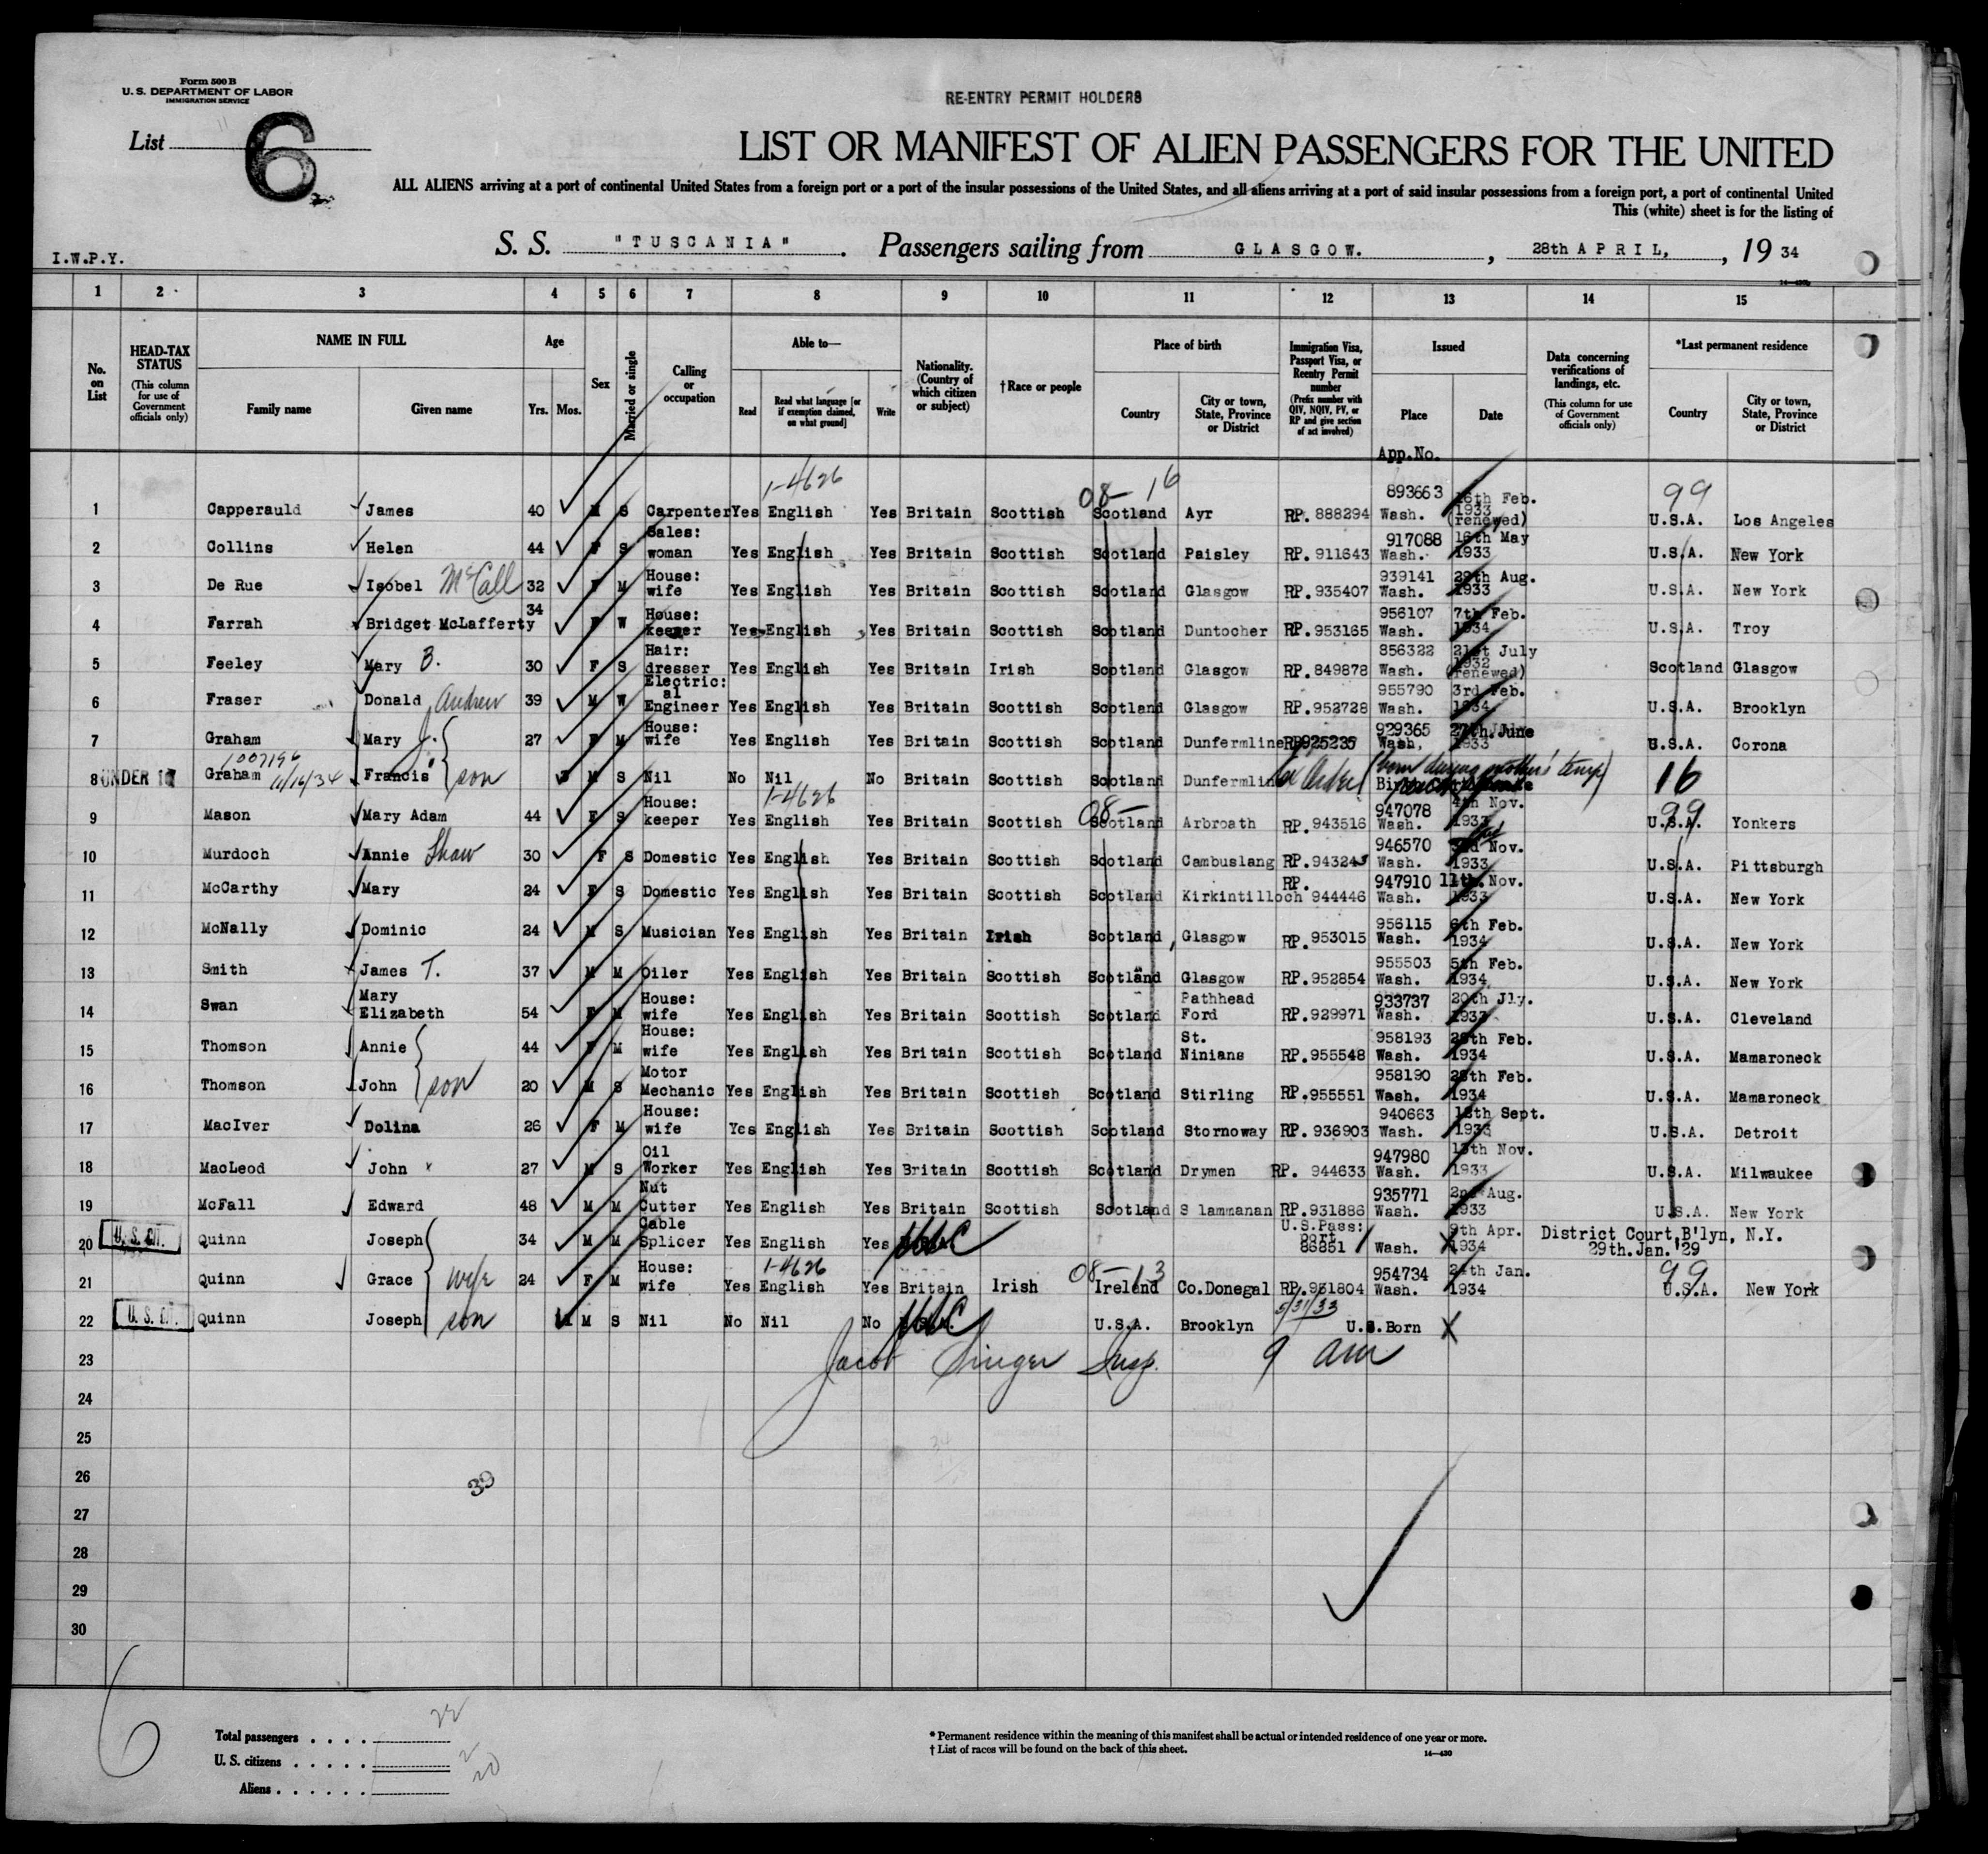 Form 500 B
U. S. DEPARTMENT OF LABOR
IMMIGRATION SERVICE
RE-ENTRY PERMIT HOLDERS
List 6
LIST OR MANIFEST OF ALIEN PASSENGERS FOR THE UNITED
ALL ALIENS arriving at a port of continental United States from a foreign port or a port of the insular possessions of the United States, and all aliens arriving at a port of said insular possessions from a foreign port, a port of continental United
This (white) sheet is for the listing of
I.W.P.Y.
S. S. "TUSCANIA" . Passengers sailing from GLASGOW. , 28th APRIL, , 19 34
1 2 3 4 5 6 7 8 9 10 11 12 13 14 15
No. on List
HEAD-TAX STATUS (This column for use of Government officials only)
NAME IN FULL
Family name Given name
Age
Yrs. Mos.
Sex
Married or single
Calling or occupation
Able to—
Read Read what language [or if exemption claimed, on what ground] Write
Nationality. (Country of which citizen or subject)
† Race or people
Place of birth
Country City or town, State, Province or District
Immigration Visa, Passport Visa, or Reentry Permit number (Prefix number with QIV, NQIV, PV, or RP and give section of act involved)
Issued
Place Date
Data concerning verifications of landings, etc. (This column for use of Government officials only)
*Last permanent residence
Country City or town, State, Province or District
App.No.
1-4626 08- 16 99
1 Capperauld James 40 M S Carpenter Yes English Yes Britain Scottish Scotland Ayr RP. 888294 893663 Wash. 16th Feb. 1933 (renewed) U.S.A. Los Angeles
2 Collins Helen 44 F S Sales: woman Yes English Yes Britain Scottish Scotland Paisley RP. 911643 917088 Wash. 16th May 1933 U.S.A. New York
3 De Rue Isobel McCall 32 F M House: wife Yes English Yes Britain Scottish Scotland Glasgow RP. 935407 939141 Wash. 29th Aug. 1933 U.S.A. New York
4 Farrah Bridget McLafferty 34 F W House: keeper Yes English Yes Britain Scottish Scotland Duntocher RP. 953165 956107 Wash. 7th Feb. 1934 U.S.A. Troy
5 Feeley Mary B. 30 F S Hair: dresser Yes English Yes Britain Irish Scotland Glasgow RP. 849878 856322 Wash. 21st July 1932 (renewed) Scotland Glasgow
6 Fraser Donald Andrew 39 M W Electric: al Engineer Yes English Yes Britain Scottish Scotland Glasgow RP. 952728 955790 Wash. 3rd Feb. 1934 U.S.A. Brooklyn
7 Graham Mary J. 27 F M House: wife Yes English Yes Britain Scottish Scotland Dunfermline RP925235 929365 Wash. 27th June 1933 U.S.A. Corona
1007196 11/16/34
8 UNDER 16 Graham Francis son M S Nil No Nil No Britain Scottish Scotland Dunfermline (born during mother's temp) 16
1-4626 08- 99
9 Mason Mary Adam 44 F S House: keeper Yes English Yes Britain Scottish Scotland Arbroath RP. 943516 947078 Wash. 4th Nov. 1933 U.S.A. Yonkers
10 Murdoch Annie Shaw 30 F S Domestic Yes English Yes Britain Scottish Scotland Cambuslang RP. 943245 946570 Wash. Nov. 1933 U.S.A. Pittsburgh
11 McCarthy Mary 24 F S Domestic Yes English Yes Britain Scottish Scotland Kirkintilloch RP. 944446 947910 Wash. 11th. Nov. 1933 U.S.A. New York
12 McNally Dominic 24 M S Musician Yes English Yes Britain Irish Scotland Glasgow RP. 953015 956115 Wash. 6th Feb. 1934 U.S.A. New York
13 Smith James T. 37 M M Oiler Yes English Yes Britain Scottish Scotland Glasgow RP. 952854 955503 Wash. 5th Feb. 1934 U.S.A. New York
14 Swan Mary Elizabeth 54 F M House: wife Yes English Yes Britain Scottish Scotland Pathhead Ford RP. 929971 933737 Wash. 20th Jly. 1933 U.S.A. Cleveland
15 Thomson Annie 44 F M House: wife Yes English Yes Britain Scottish Scotland St. Ninians RP. 955548 958193 Wash. 28th Feb. 1934 U.S.A. Mamaroneck
16 Thomson John son 20 M S Motor Mechanic Yes English Yes Britain Scottish Scotland Stirling RP. 955551 958190 Wash. 28th Feb. 1934 U.S.A. Mamaroneck
17 MacIver Dolina 26 F M House: wife Yes English Yes Britain Scottish Scotland Stornoway RP. 936903 940663 Wash. Sept. 1933 U.S.A. Detroit
18 MacLeod John 27 M S Oil Worker Yes English Yes Britain Scottish Scotland Drymen RP. 944633 947980 Wash. 13th Nov. 1933 U.S.A. Milwaukee
19 McFall Edward 48 M M Nut Cutter Yes English Yes Britain Scottish Scotland S lammanan RP. 931886 935771 Wash. 2nd Aug. 1933 U.S.A. New York
20 U. S. CIT. Quinn Joseph 34 M M Cable Splicer Yes English Yes USC U.S.Pass: port 86851 Wash. 9th Apr. 1934 District Court, B'lyn, N.Y. 29th. Jan. '29
1-4626 08- 13 99
21 Quinn Grace wife 24 F M House: wife Yes English Yes Britain Irish Ireland Co.Donegal RP. 951804 954734 Wash. 24th Jan. 1934 U.S.A. New York
22 U. S. CIT. Quinn Joseph son 11 M S Nil No Nil No USC U.S.A. Brooklyn 5/31/33 U.S.Born
23 Jacob Singer Insp. 9 am
24
25
26
39
27
28
29
30
6
Total passengers . . . . 22
U. S. citizens . . . . . 2
Aliens . . . . . . 20
* Permanent residence within the meaning of this manifest shall be actual or intended residence of one year or more.
† List of races will be found on the back of this sheet.
14—430